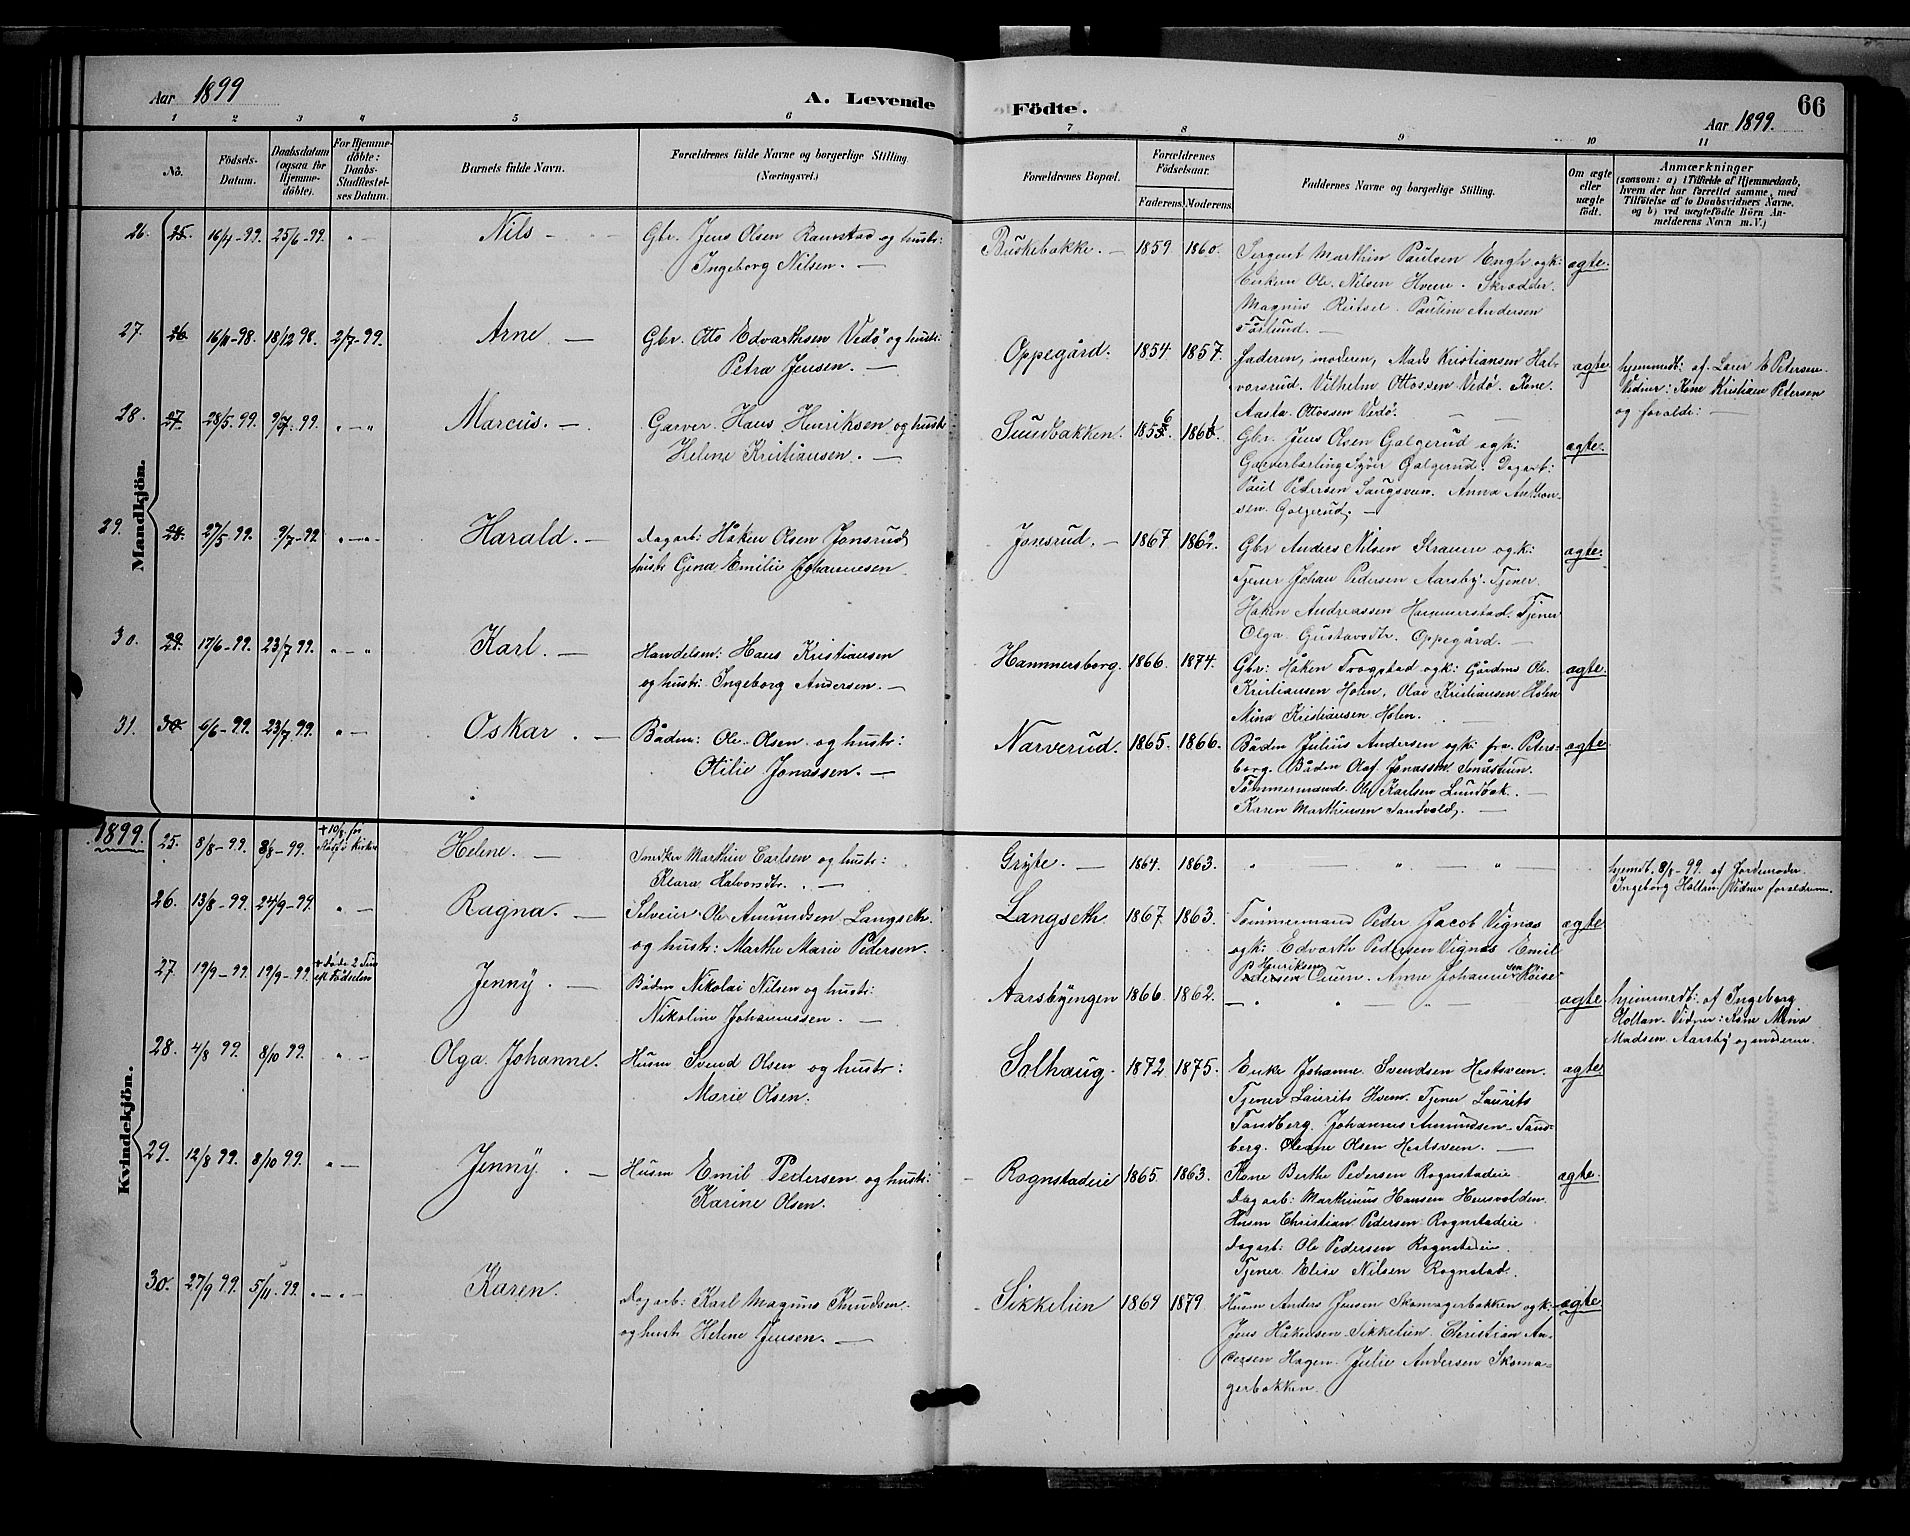 Aar 1899
A. Levende
Födte.
66
Aar 1899.
1 2 3 4 5 6 7 8 9 10 11
No.
Födsels-
Datum.
Daabsdatum
(ogsaa for
Hjemme-
döbte).
For Hjemme-
döbte:
Daabs-
Stadfæstel-
ses Datum.
Barnets fulde Navn.
Forældrenes fulde Navne og borgerlige Stilling.
(Næringsvei.)
Forældrenes Bopæl.
Forældrenes
Födselsaar.
Faderens. Moderens.
Faddernes Navne og borgerlige Stilling.
Om ægte
eller
uægte
födt.
Anmærkninger
(saasom: a) i Tilfælde af Hjemmedaab,
hvem der har forrettet samme, med
Tilföielse af to Daabsvidners Navne,
og b) ved uægtefödte Börn An-
melderens Navn m. V.)
Mandkjön.
26. 25. 16/4-99. 25/6-99. " — Nils —
Gbr. Jens Olsen Ramstad og hustr:
Ingeborg Nilsen. —
Buskebakke. — 1859. 1860.
Sergent Marthin Paulsen Engh og k:
Enkem Ole Nilsen Hvem. Skrædder.
Magnus Reitsel. Pauline Andersen
Törlund. —
ægte.
27. 26. 16/11-98. 18/12 98. 2/7-99. Arne —
Gbr. Otto Edvarthsen Vedö og hustr:
Petra Jensen. —
Oppegård. 1854. 1857.
Faderen, moderen, Mads Kristiansen Hal-
vorsrud. Vilhelm Ottossen Vedö. Kone
Aasta Ottossen Vedö.
ægte
hjemmedt: af Lærer E Petersen.
Vidner: Kone Kristiane Petersen
og forældr: —
28. 27. 28/5. 99. 9/7. 99. " — " Marcus. —
Garver. Hans Henriksen og hustr
Helene Kristiansen. —
Sundbakken. 1856. 1861.
Gbr. Jens Olsen Galgerud og k:
Garverlærling Syver Galgerud. Dagarb:
Paul Pedersen Saugsveen. Anna Anthon-
sen. Galgerud. —
ægte.
29. 28. 27/5-99. 9/7-99. " — " Harald. —
Dagarb: Håken Olsen Jonsrud
hustr Gina Emilie Johannesen
Jonsrud. — 1867 1862.
Gbr Anders Nilsen Straum og k:
Tjener Johan Pedersen Aarsby. Tjener
Haken Andreassen Hammerstad. Tjener
Olga Gustavsdtr. Oppegård. —
ægte.
30. 29. 17/6-99. 23/7 99. " — " Karl. —
Handelsm: Hans Kristiansen
og hustr: Ingeborg Andersen. —
Hammersborg. 1866. 1874.
Gbr: Håken Trogstad og k: Gårdm Ole
Kristiansen Holen, Olav Kristiansen Holen
Mina Kristiansen Holen.
ægte.
31. 30 6/6-99. 23/7 99. " — Oskar. —
Båden: Ole Olsen og hustr:
Otilie Jonassen. —
Narverud. 1865. 1866.
Båden Julius Andersen og k: fra Peters-
borg. Båden Olaf Jonassen Småstuen.
Tömmermand. Ole Karlsen Lundbak. —
Karen Marthinsen Sandvold. —
ægte.
1899.
Kvindekjön.
25. 8/8-99. 8/8-99. +10/8. för
Helene. —
Snedker Marthin Carlsen og hustr:
Klara Halvorsdtr. —
Gryte. — 1864. 1863. " — " — "
hjemdt. 8/8-99. af Jordemoder
Ingeborg Hollan. Vidner forældrene.
26. 13/8-99. 24/9-99. " — Ragna. —
Selveier Ole Amundsen Langseth
og hustr: Marthe Marie Pedersen.
Langseth 1867. 1863.
Tömmermand Peder Jacob Vignæs
og k: Edvarth Pedersen Vignæs Emil
Henriksen
Pedersen. Anne Johanne
ægte
27. 19/9-99. 19/9-99. + döde 2 Tim
eft Födselen Jenny. —
Båden Nikolai Nilsen og hustr:
Nikoline Johannessen. —
Aarsbyengen 1866. 1862. — " — " — ægte.
hjemmedt: af Ingeborg
Hollan. Vidner: Kone Mina
Madsen. Aarsby og moderen.
28. 4/8 99. 8/10 99. " — Olga Johanne.
Husm Svend Olsen og hustr:
Marie Olsen.
Solhaug. 1872. 1875.
Enke Johanne Svendsen Hestsveen.
Tjener Laurits Hvem. Tjener Laurits
Sandberg. Johannes Amundsen Sand-
berg. Oleane Olsen Hestsveen. —
ægte
29. 12/8 99. 8/10 99. " — Jenny. —
Husm Emil Pedersen og hustr:
Karine Olsen.
Rognstadeie 1865. 1863.
Kone Berthe Pedersen Rognstadeie
Dagarb: Marthinus Hansen Hensvolden.
Husm Christian Pedersen Rognstadeie
Dagarb: Ole Pedersen Rognstadeie.
Tjener Elise Nilsen Rognstad.
ægte.
30. 27/9 99. 5/11-99. " — " — Karen.
Dagarb: Karl Magnus Knudsen
og hustr Helene Jensen. —
Sikkelien 1869 1879.
Husm Anders Jensen Skomagerbakken og k:
Jens Håkensen Sikkelien. Christian An-
dersen Hagen. Julie Andersen Skoma-
gerbakken.
ægte.